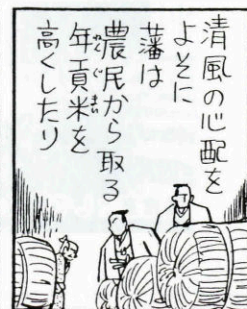 清風の心配を
よそに
藩は
農民から取る
年貢米を
高くしたり